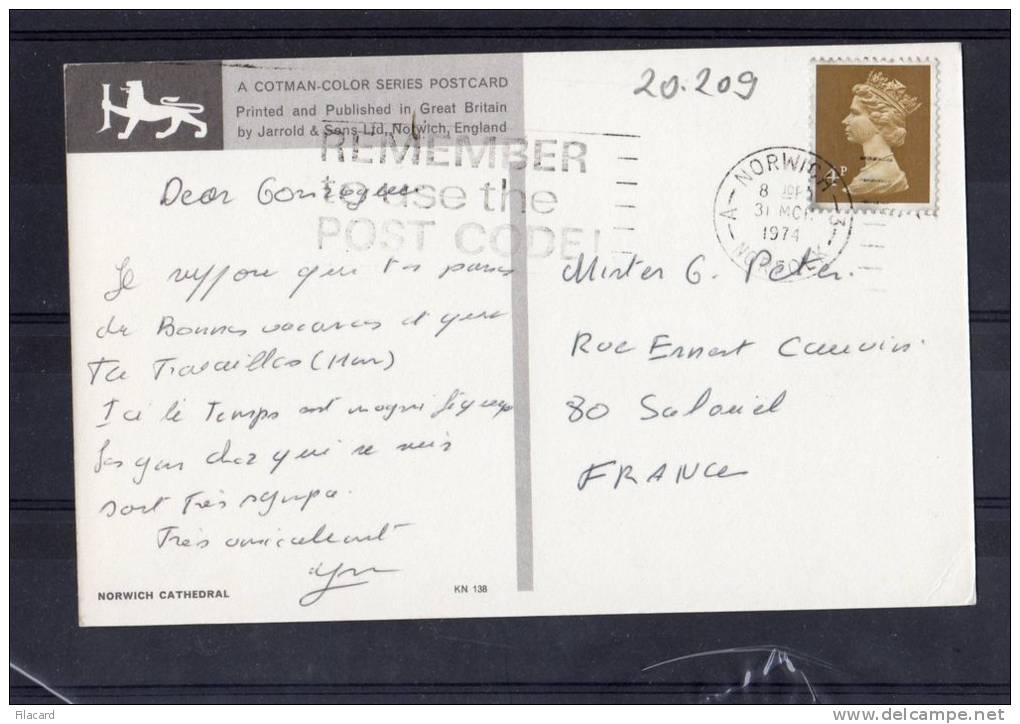 A COTMAN-COLOR SERIES POSTCARD
Printed and Published in Great Britain
by Jarrold & Sons Ltd, Norwich, England
20.209
4P
REMEMBER
to use the
POST CODE!
NORWICH
8
31
1974
A
3
NORFOLK
Dear
Je que tu passes
de Bonnes vacances et que
Tu Travailles (Hum)
Ici le Temps est magnifique
les gens chez qui je suis
sont Très sympa.
Très amicalement
Mister G. Peter.
Rue Ernest Cauvin
80 Salouël
FRANCE
NORWICH CATHEDRAL
KN 138
Filacard
www.delcampe.net